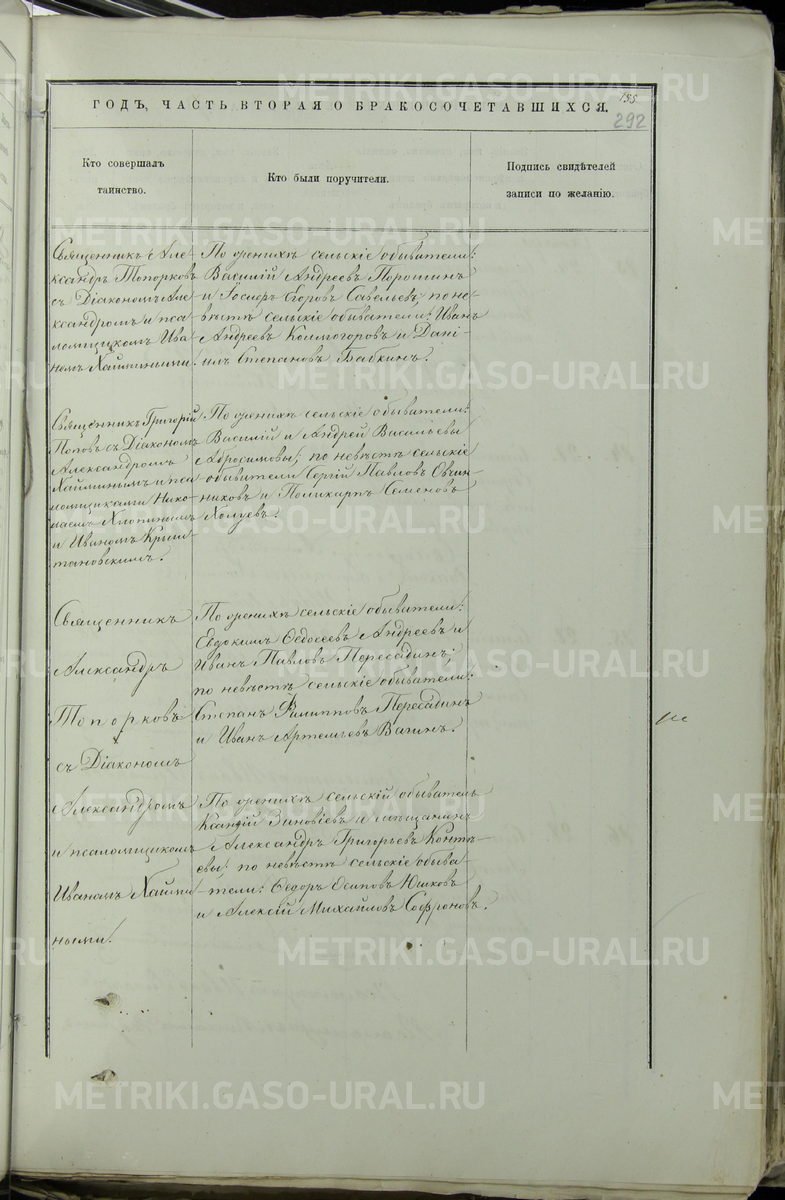 155
ГОДЪ, ЧАСТЬ ВТОРАЯ О БРАКОСОЧЕТАВШИХСЯ.
292
Кто совершалъ
таинство.
Кто были поручители.
Подпись свидѣтелей
записи по желанію.
Священникъ Але-
ксандръ Топорковъ
съ Діакономъ Але-
ксандромъ и пса-
ломщикомъ Ива-
номъ Хаймиными.
По женихѣ сельскіе обыватели:
Василій Андреевъ Порошинъ
и Іосифъ Егоровъ Савельевъ; по не-
вѣстѣ сельскіе обыватели: Иванъ
Андреевъ Колмогоровъ и Дані-
илъ Степановъ Бабкинъ.
Священникъ Григорій
Поповъ съ Діакономъ
Александромъ
Хайминымъ и пса-
ломщиками Нико-
лаемъ Хлопинымъ
и Иваномъ Крыш-
тановскимъ.
По женихѣ сельскіе обыватели:
Василій и Андрей Васильевы
Абросимовы; по невѣстѣ сельскіе
обыватели Сергій Павловъ Овчин-
никовъ и Поликарпъ Семеновъ
Холуевъ.
Священникъ
Александръ
Топорковъ
съ Діакономъ
Александромъ
и псаломщикомъ
Иваномъ Хайми-
ными.
По женихѣ сельскіе обыватели:
Евдокимъ Ѳедосеевъ Андреевъ и
Иванъ Павловъ Пересадинъ;
по невѣстѣ сельскіе обыватели:
Степанъ Филипповъ Пересадинъ
и Иванъ Артемьевъ Вагинъ.
По женихѣ сельскій обыватель
Ксанфій Зиновіевъ и мѣщанинъ
Александръ Григорьевъ Контѣ-
евы; по невѣстѣ сельскіе обыва-
тели: Ѳедоръ Осиповъ Юшковъ
и Алексій Михайловъ Софроновъ.
METRIKI.GASO-URAL.RU